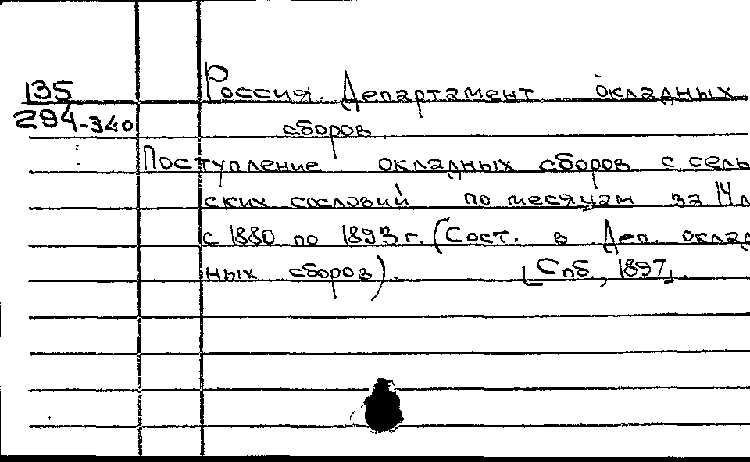 135
294-340
Россия. Департамент окладных
сборов.
Поступление окладных сборов с сель
ских сословий по месяцам за 14 л
с 1880 по 1893 г. (Сост. в Деп. оклад
ных сборов). [Спб, 1897].